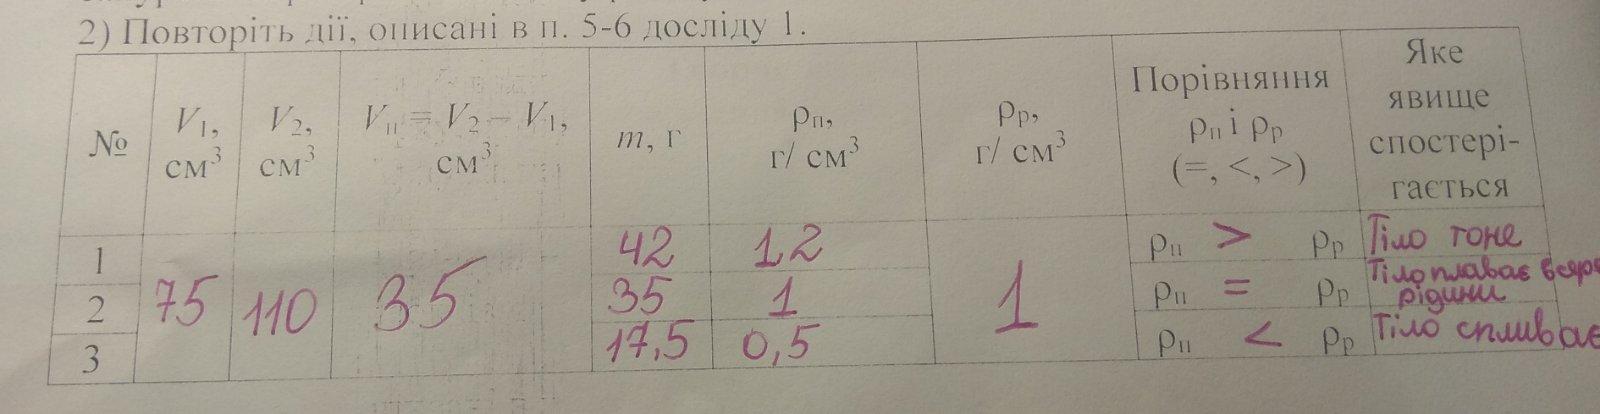 2) Повторіть дії, описані в п. 5-6 досліду 1.
№ V1, см³ V2, см³ Vп = V2 – V1, см³ m, г ρп, г/ см³ ρр, г/ см³ Порівняння ρп і ρр (=, <, >) Яке явище спостері-гається
1 75 110 35 42 1,2 1 ρп > ρр Тіло тоне
2 35 1 ρп = ρр Тіло плаває рідини
3 17,5 0,5 ρп < ρр Тіло спливає